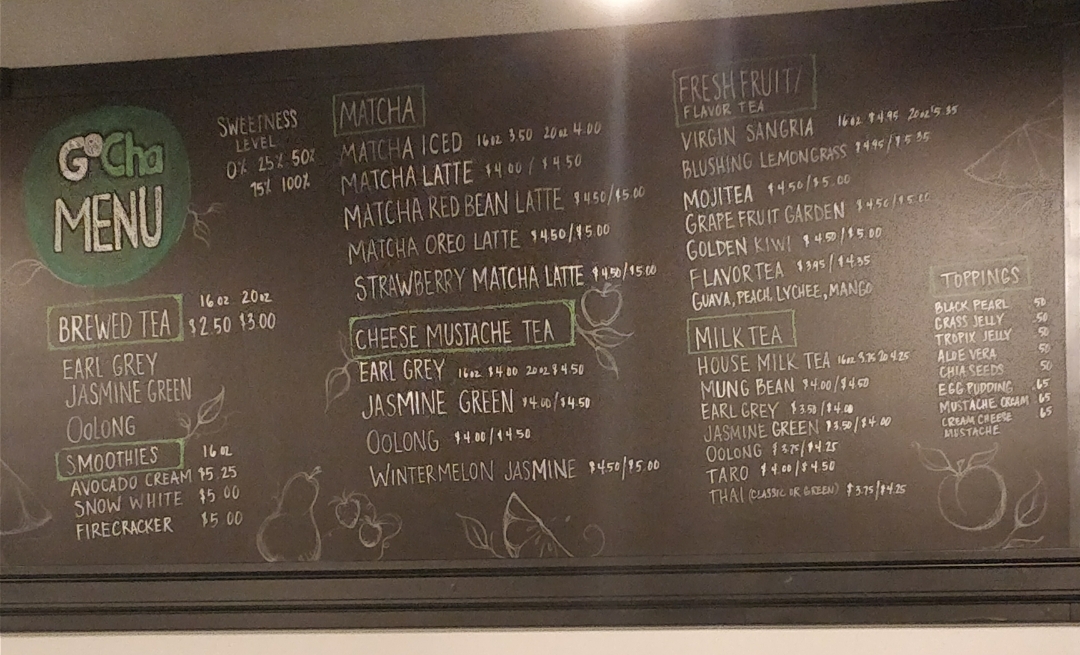 GoCha
MENU
SWEETNESS
LEVEL
0% 25% 50%
75% 100%
16 oz 20 oz
BREWED TEA $2.50 $3.00
EARL GREY
JASMINE GREEN
OOLONG
SMOOTHIES 16 oz
AVOCADO CREAM $5.25
SNOW WHITE $5.00
FIRECRACKER $5.00
MATCHA
MATCHA ICED 16oz 3.50 20oz 4.00
MATCHA LATTE $4.00/$4.50
MATCHA RED BEAN LATTE $4.50/$5.00
MATCHA OREO LATTE $4.50/$5.00
STRAWBERRY MATCHA LATTE $4.50/$5.00
CHEESE MUSTACHE TEA
EARL GREY 16oz $4.00 20oz $4.50
JASMINE GREEN $4.00/$4.50
OOLONG $4.00/$4.50
WINTERMELON JASMINE $4.50/$5.00
FRESH FRUIT/
FLAVOR TEA
VIRGIN SANGRIA 16oz $4.95 20oz $5.35
BLUSHING LEMONGRASS $4.95/$5.35
MOJITEA $4.50/$5.00
GRAPEFRUIT GARDEN $4.50/$5.00
GOLDEN KIWI $4.50/$5.00
FLAVOR TEA $3.95/$4.35
GUAVA, PEACH, LYCHEE, MANGO
MILK TEA
HOUSE MILK TEA 16oz 3.75 20 4.25
MUNG BEAN $4.00/$4.50
EARL GREY $3.50/$4.00
JASMINE GREEN $3.50/$4.00
OOLONG $3.75/$4.25
TARO $4.00/$4.50
THAI (CLASSIC OR GREEN) $3.75/$4.25
TOPPINGS
BLACK PEARL .50
GRASS JELLY .50
TROPIX JELLY .50
ALOE VERA .50
CHIA SEEDS .50
EGG PUDDING .65
MUSTACHE CREAM .65
CREAM CHEESE .65
MUSTACHE